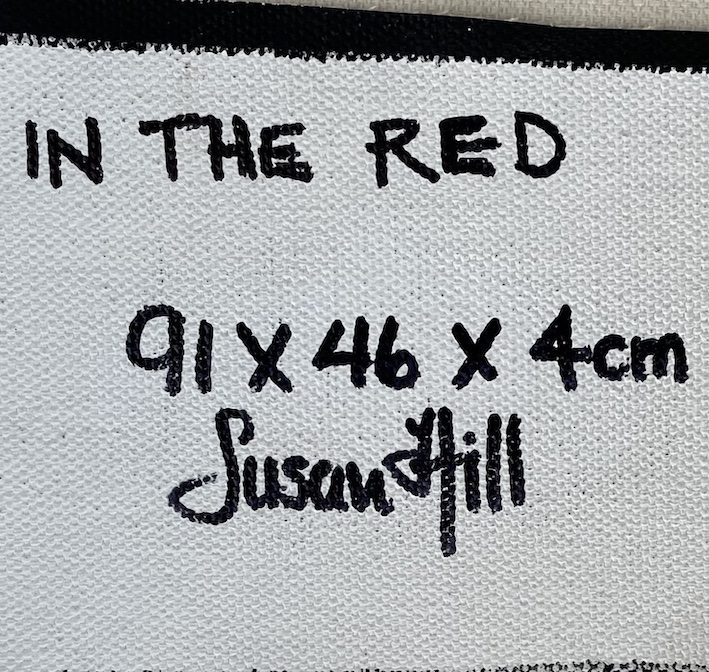 IN THE RED
91 X 46 X 4cm
Susan Hill